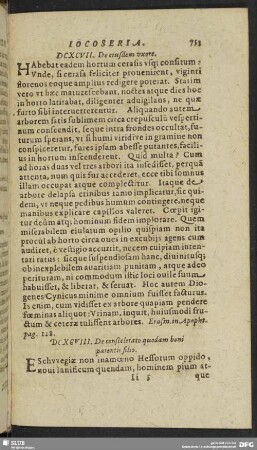 IOCOSERIA. 753
DCXCVII. De eiusdem vxore.
HAbebat eadem hortum cerasis vsq; consitum:
Vnde, si cerasa feliciter prouenirent, viginti
florenos eoque amplius redigere poterat. Statim
vero vt hæc maturescebant, noctes atque dies hoc
in horto latitabat, diligenter aduigilans, ne quæ
furto sibi interuerterentur. Aliquando autem
arborem satis sublimem circa crepusculũ vespertinum
conscendit, seque intra frondes occultat, futurum
sperans, vt si humi viridive in gramine non
conspiceretur, fures ipsam abesse putantes, eo facilius
in hortum inscenderent. Quid multa? Cum
ad horas duas vel tres arbori ita insedisset, perquã
attenta, num quis fur accederet, ecce tibi somnus
illam occupat atque complectitur. Itaque de
arbore delapsa crinibus ramo implicatur, sic quidem,
vt neque pedibus humum contingere, neque
manibus explicare capillos valeret. Cœpit igitur
deûm atq; hominum fidem implorare. Quem
miserabilem eiulatum opilio quispiam non ita
procul ab horto circa oues in excubijs agens cum
audiret, è vestigio accurrit, necem cuipiam intentari
ratus: sicque suspendiosam hanc, diuinitusq;
ob inexplebilem auaritiam punitam, atque adeo
perituram, ni commodum istic loci ouile suum
habuisset, & liberat, & seruat. Hoc autem Diogenes
Cynicus minime omnium fuisset facturus.
Is enim, cum vidisset ex arbore quapiam pendere
fœminas aliquot: Vtinam, inquit, huiusmodi fructum
& ceteræ tulissent arbores. Erasm. in Apopht.
pag. 128.
DCXCVIII. De consceleratο quodam boni
parentis filio.
ESchvvegiæ non inamœno Hessorum oppido,
noui lanificum quendam, hominem pium at-
Ii 5 que
SLUB
DFG